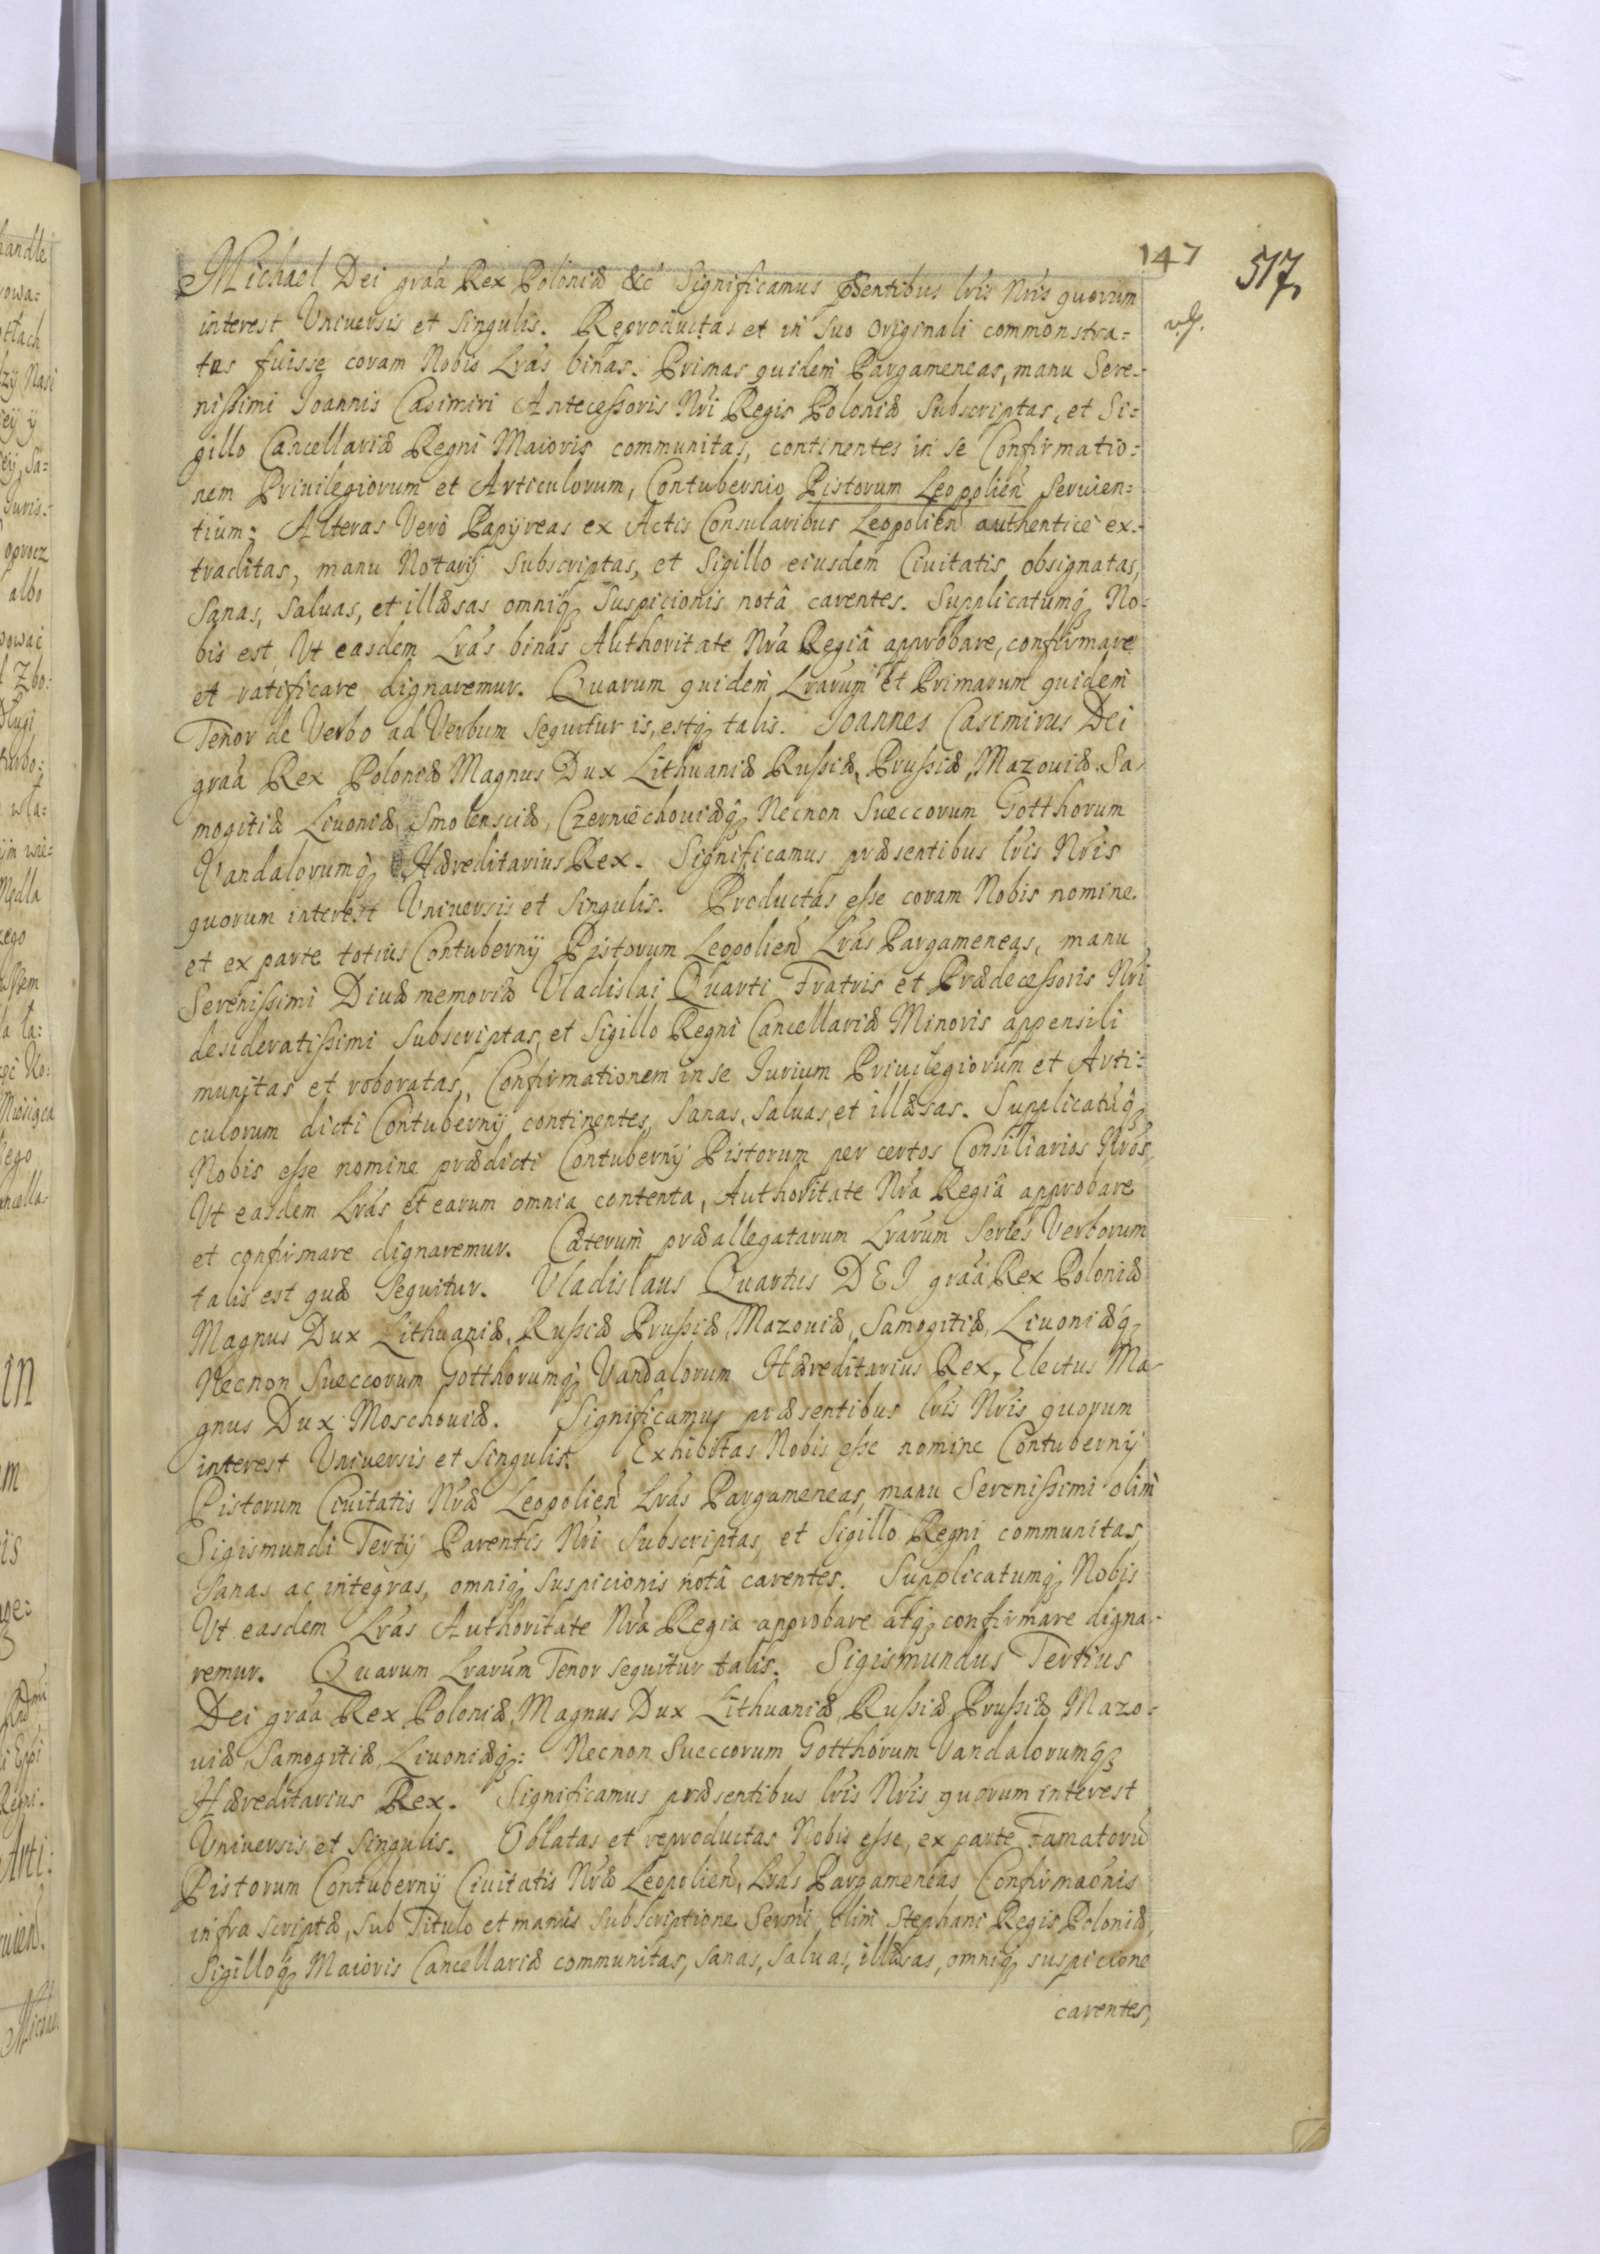 147
517,
Michael Dei graa Rex Poloniæ &c Significamus pñsentibus lris Nris quorum
interest Universis et Singulis. Reproductas et in Suo Originali commonstra-
tas fuisse coram Nobis Lras binas. Primas quidem Pargameneas, manu Sere-
nissimi Joannis Casimiri Antecessoris Nri Regis Poloniæ Subscriptas, et Si-
gillo Cancellariæ Regni Maioris communitas, continentes in se Confirmatio-
nem Priuilegiorum et Articulorum, Contubernio Pistorum Leopolien Seruien-
tium: Alteras Verò Papyreas ex Actis Consularibus Leopolien authenticè ex-
traditas, manu Notarij Subscriptas, et Sigillo eiusdem Ciuitatis obsignatas,
Sanas, Saluas, et illæsas omniq3 Suspicionis notâ carentes. Supplicatumq3 No-
bis est, Ut easdem Lras binas Authoritate Nra Regiâ approbare, confirmare
et ratificare dignaremur. Quarum quidem Lrarum et Primarum quidem
Tenor de Verbo ad Verbum Sequitur is, estq3 talis. Joannes Casimirus Dei
graa Rex Poloniæ Magnus Dux Lithuaniæ Russiæ, Prussiæ, Mazouiæ Sa-
mogitiæ Liuoniæ, Smolensciæ, Czerniechouiæq3 Necnon Sueccorum Gotthorum
Vandalorumq3 Hæreditarius Rex. Significamus præsentibus lris Nris
quorum interest Universis et Singulis. Productas esse coram Nobis nomine
et ex parte totius Contubernij Pistorum Leopolien Lras Pargameneas, manu
Serenissimi Diuæ memoriæ Vladislai Quarti Fratris et Prædecessoris Nri
desideratissimi Subscriptas, et Sigillo Regni Cancellariæ Minoris appensili
munitas et roboratas, Confirmationem in se Iurium Priuilegiorum et Arti-
culorum dicti Contubernij continentes, Sanas, Saluas, et illæsas. Supplicatuq3
Nobis esse nomine prædicti Contubernij Pistorum per certos Consiliarios Nros
Ut easdem Lras et earum omnia contenta, Authoritate Nra Regiâ approbare
et confirmare dignaremur. Cæterum præallegatarum Lrarum Series Verborum
talis est quæ Sequitur. Vladislaus Quartus DEI graa Rex Poloniæ
Magnus Dux Lithuaniæ, Russiæ Prussiæ, Mazouiæ, Samogitiæ, Liuoniæq3
Necnon Sueccorum Gotthorumq3 Vandalorum Hæreditarius Rex, Electus Ma-
gnus Dux Moschouiæ. Significamus præsentibus lris Nris quorum
interest Universis et Singulis. Exhibitas Nobis esse nomine Contubernij
Pistorum Ciuitatis Nræ Leopolien Lras Pargameneas, manu Serenissimi olim
Sigismundi Tertij Parentis Nri Subscriptas, et Sigillo Regni communitas,
Sanas ac integras, omniq3 suspicionis notâ carentes. Supplicatumq3 Nobis
Ut easdem Lras Authoritate Nra Regia approbare atq3 confirmare digna-
remur. Quarum Lrarum Tenor sequitur talis. Sigismundus Tertius
Dei graa Rex Poloniæ, Magnus Dux Lithuaniæ, Russiæ, Prussiæ, Mazo-
uiæ, Samogitiæ, Liuoniæq3: Necnon Sueccorum Gotthorum Vandalorumq3
Hæreditarius Rex. Significamus præsentibus lris Nris quorum interest
Universis et Singulis. Oblatas et reproductas Nobis esse, ex parte Famatorũ
Pistorum Contubernij Ciuitatis Nræ Leopolien, Lras Pargameneas Confirmaonis
infra scriptæ, sub Titulo et manus subscriptione Sermi olim Stephani Regis Poloniæ,
Sigilloq3 Maioris Cancellariæ communitas, sanas, saluas, illæsas, omniq3 suspicione
carentes,